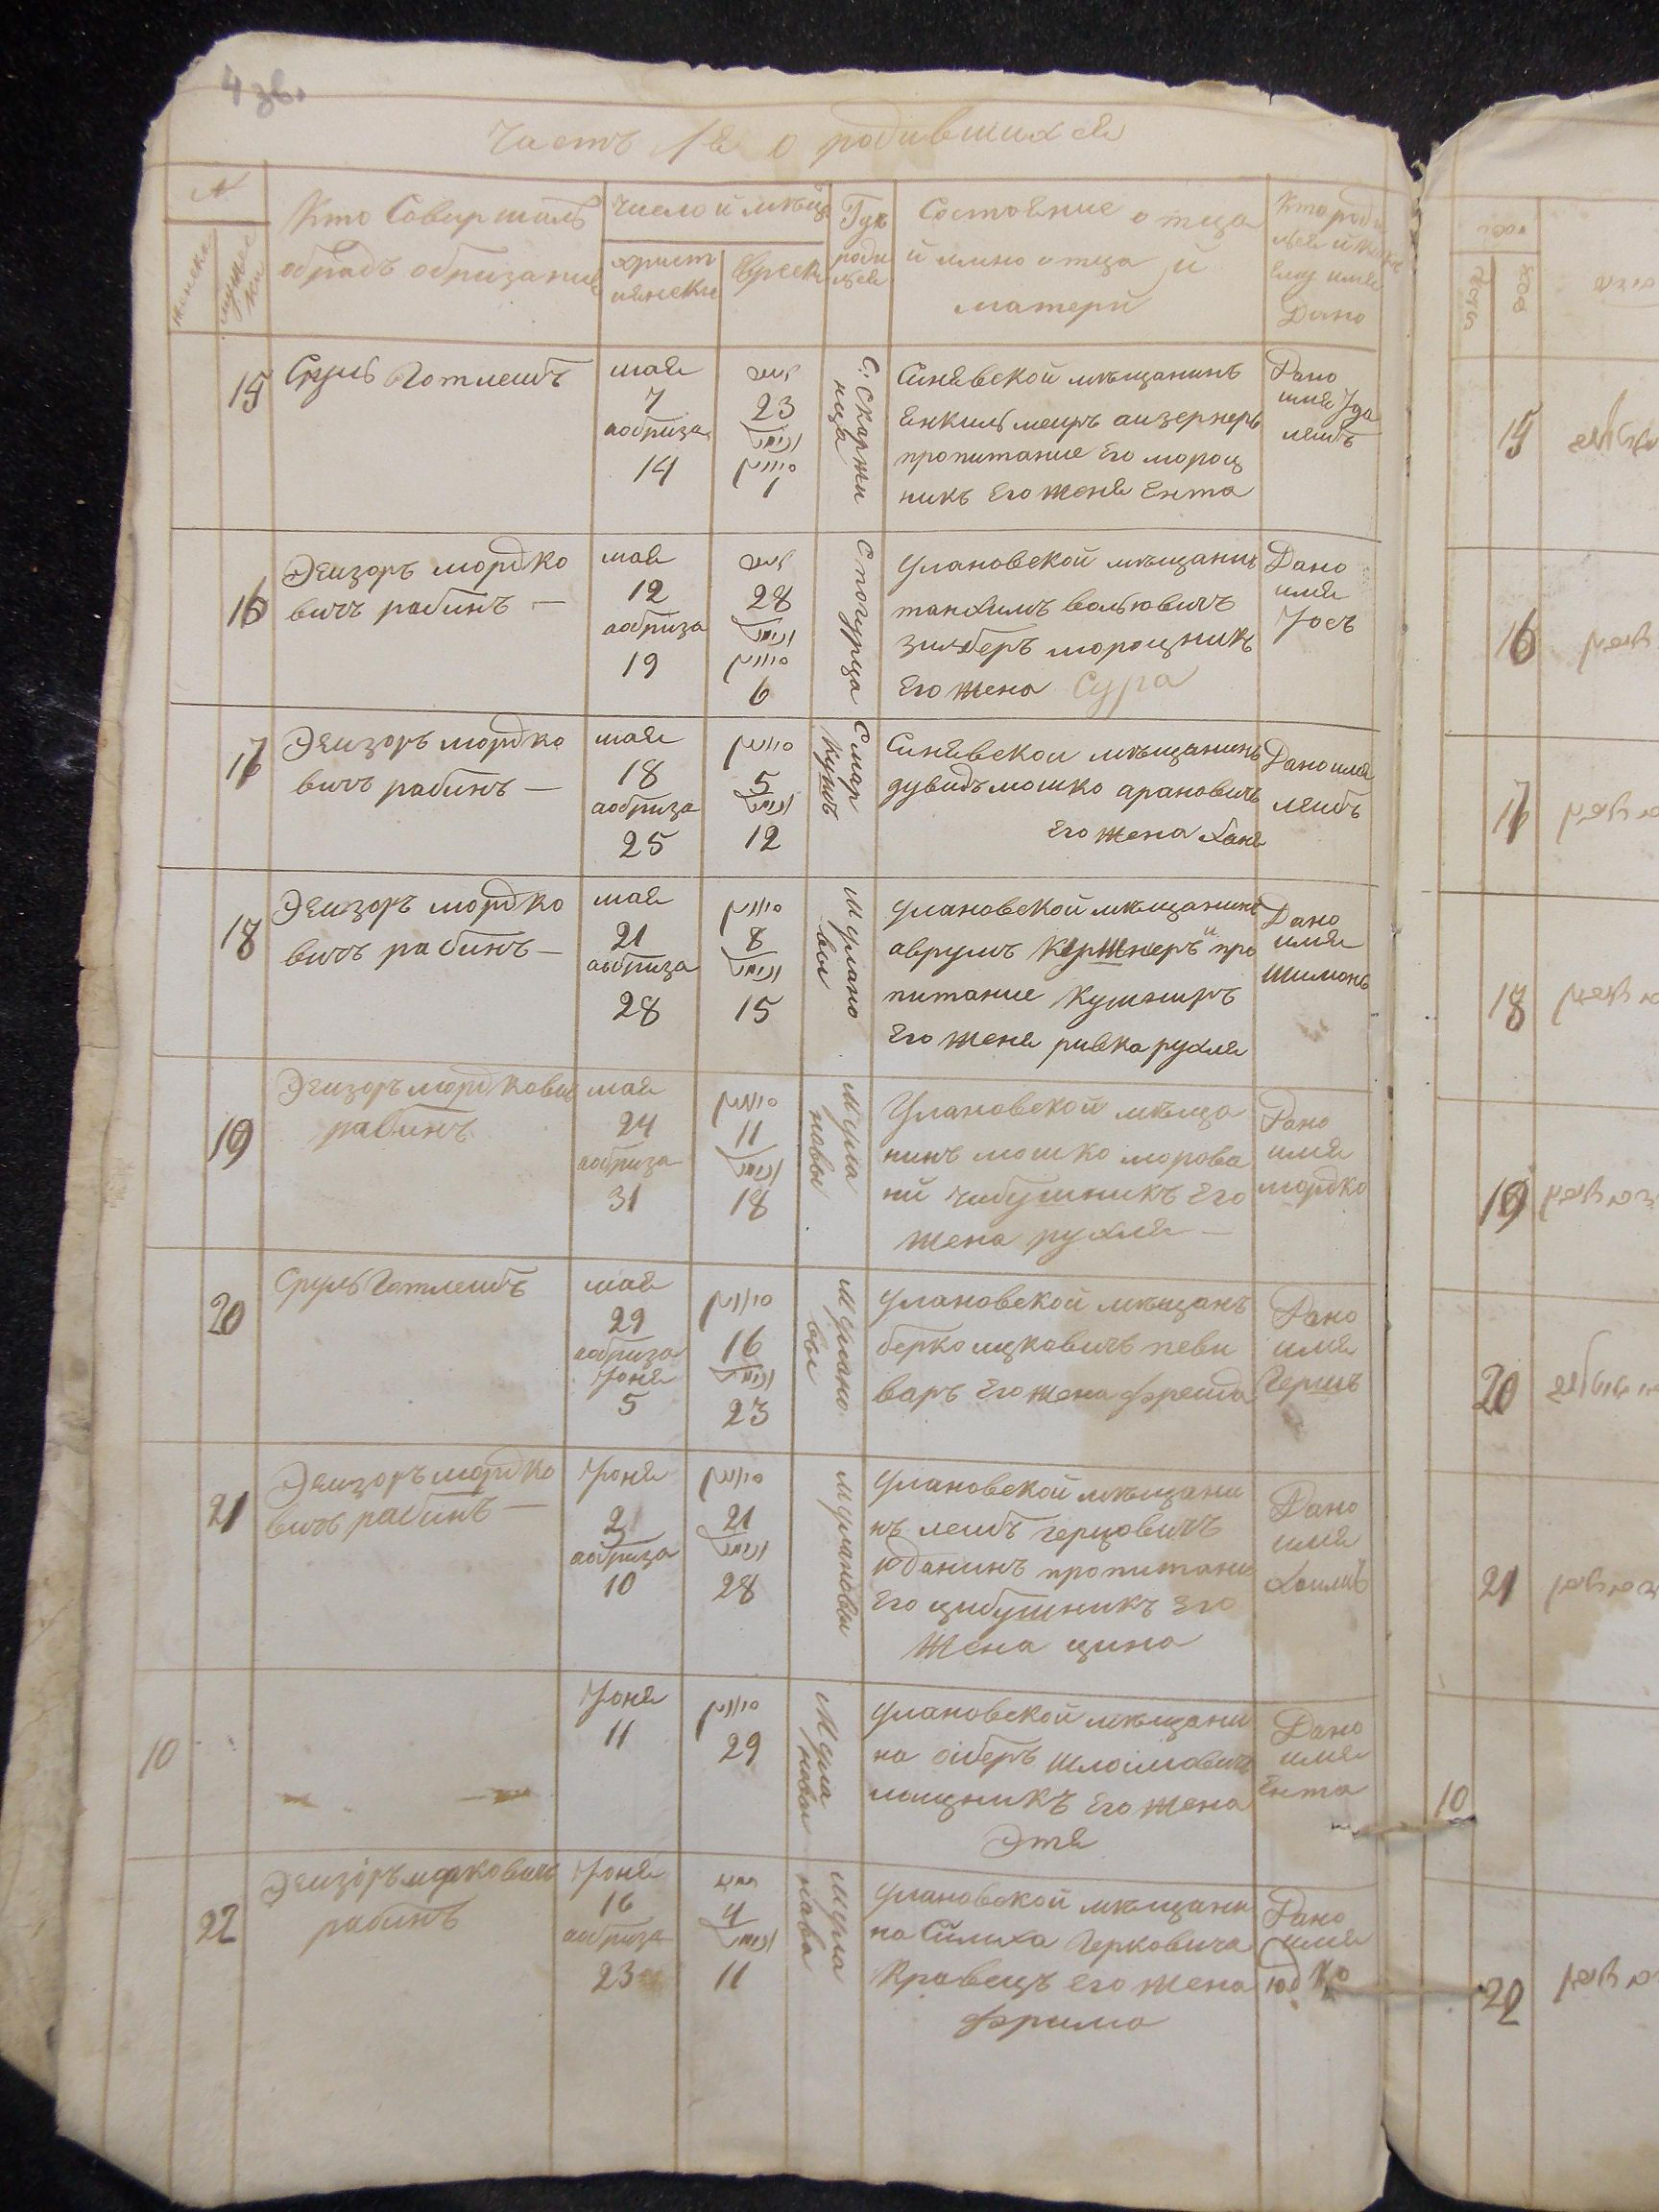 4 зв.
Часть 1я о родившихся
№
женска
мужес
ки
Кто Совиршалъ
обрадъ обризание
число и мѣцъ
христ
иянски
Еврески
Гдѣ
роди
лься
Состояние отца
и имяно отца и
матери
Кто роди
лься и како
Ему имя
Дано
15
Сруль Готлеибъ
мая
7
аобриза
14
אייר
23
נימול
סיון
1
С: Скаржи
нца
Синявской мѣщанинъ
Енкиль меиръ аизернеръ
пропитание Его морощ
никъ Его женя Ента
Дано
имя Jда
леибъ
16
Элизоръ мордко
вичъ рабинъ —
мая
12
аобриза
19
אייר
28
נימול
סיון
6
С погурца
Улановской мѣщанинъ
танхимъ вольковичъ
зильберъ морощникъ
Его жена Сура
Дано
имя
Jосъ
17
Элизоръ мордко
вичъ рабинъ —
мая
18
аобриза
25
סיון
5
נימול
12
С мар
кушъ
Синявскои мѣщанинъ
дувидъ мошко арановичъ
Его жена Ханя
Дано имя
леибъ
18
Элизоръ мордко
вичъ рабинъ —
мая
21
аобриза
28
סיון
8
נימול
15
М улано
вы
Улановской мѣщанинъ
аврумъ Кержнеръ про
питание Кушниръ
Его женя ривка рухля
Дано
имя
Шимонъ
19
Элизоръ мордковичъ
рабинъ
мая
24
аобриза
31
סיון
11
נימול
18
М ула
новы
Улановской мѣща
нинъ мошко морова
ни чибушникъ Его
жена рухля —
Дано
имя
мордко
20
Сруль Готлеибъ
мая
29
аобриза
Jоня
5
סיון
16
נימול
23
М улано
вы
Улановской мѣщанъ
берко ицковичъ певи
варъ Его жена фреида
Дано
имя
Гершъ
21
Элизоръ мордко
вичъ рабинъ —
Jоня
2
аобриза
10
סיון
21
נימול
28
М улановы
Улановской мѣщани
нъ леибъ герцовичъ
юданинъ пропитани
Его цибушникъ Его
жена цина
Дано
имя
Хаимъ
10
Jоня
11
סיון
29
М ула
новы
Улановской мѣщани
на оиберъ шлоимовичъ
мощникъ Его жена
Этя
Дано
имя
Ента
22
Элизоръ мордковичъ
рабинъ
Jоня
16
аобриза
23
תמוז
4
נימול
11
М ула
нова
Улановской мѣщани
на Симха Герковича
Кравецъ Его жена
фрима
Дано
имя
юдко
15
16
17
18
19
20
21
10
22